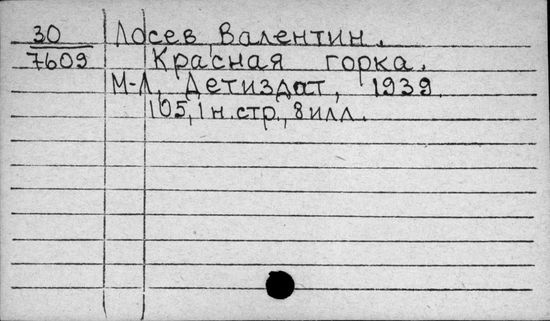 30 Лосев, Валентин.
7609 Красная горка.
М-Л, Детиздат, 1939.
105, 1н.стр., 8илл.